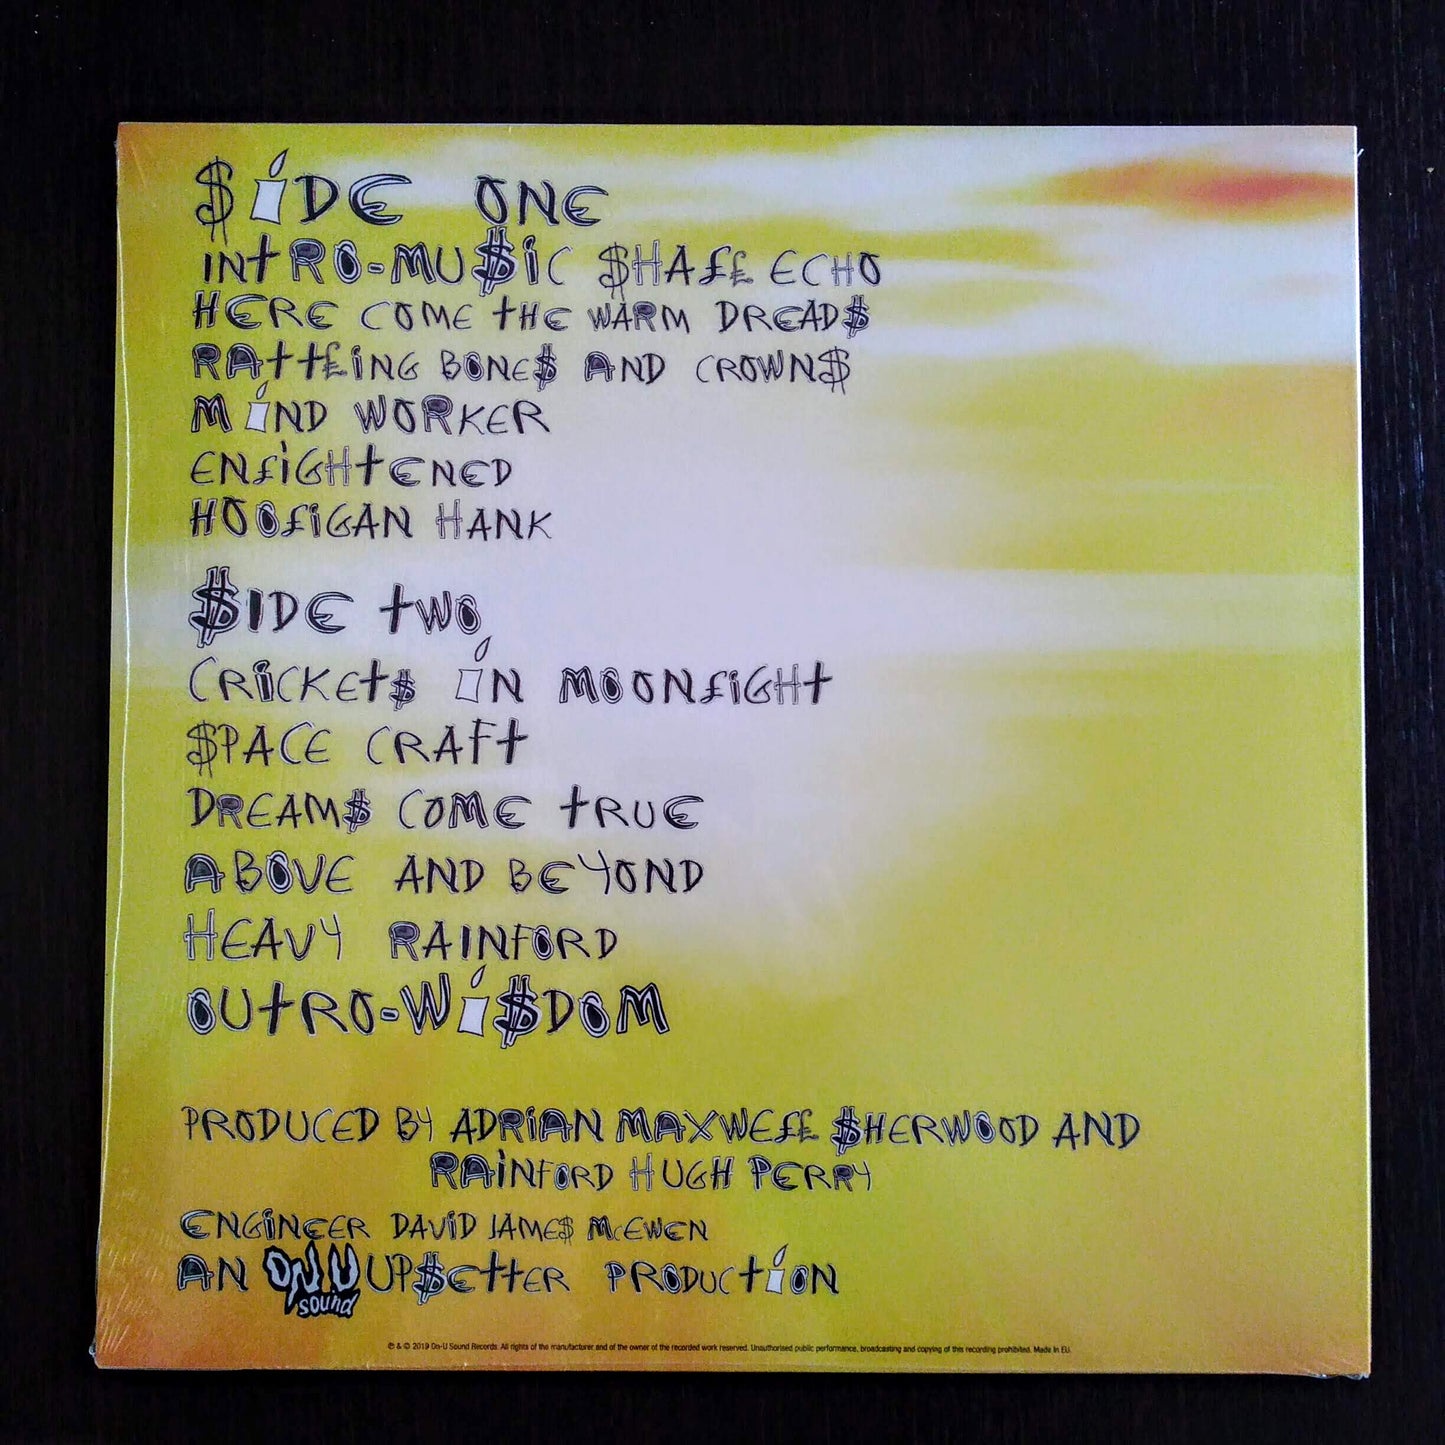 SiDE ONE
INTRO-MUSIC SHALL ECHO
HERE COME THE WARM DREADS
RATTLING BONES AND CROWNS
MIND WORKER
ENLIGHTENED
HOOLIGAN HANK
SIDE TWO
CRICKETS IN MOONLIGHT
SPACE CRAFT
DREAMS COME TRUE
ABOVE AND BEYOND
HEAVY RAINFORD
OUTRO-WISDOM
PRODUCED BY ADRIAN MAXWELL SHERWOOD AND
RAINFORD HUGH PERRY
ENGINEER DAVID JAMES McEWEN
AN ON U SOUND UPSETTER PRODUCTION
℗ & © 2019 On-U Sound Records. All rights of the manufacturer and of the owner of the recorded work reserved. Unauthorised public performance, broadcasting and copying of this recording prohibited. Made In EU.